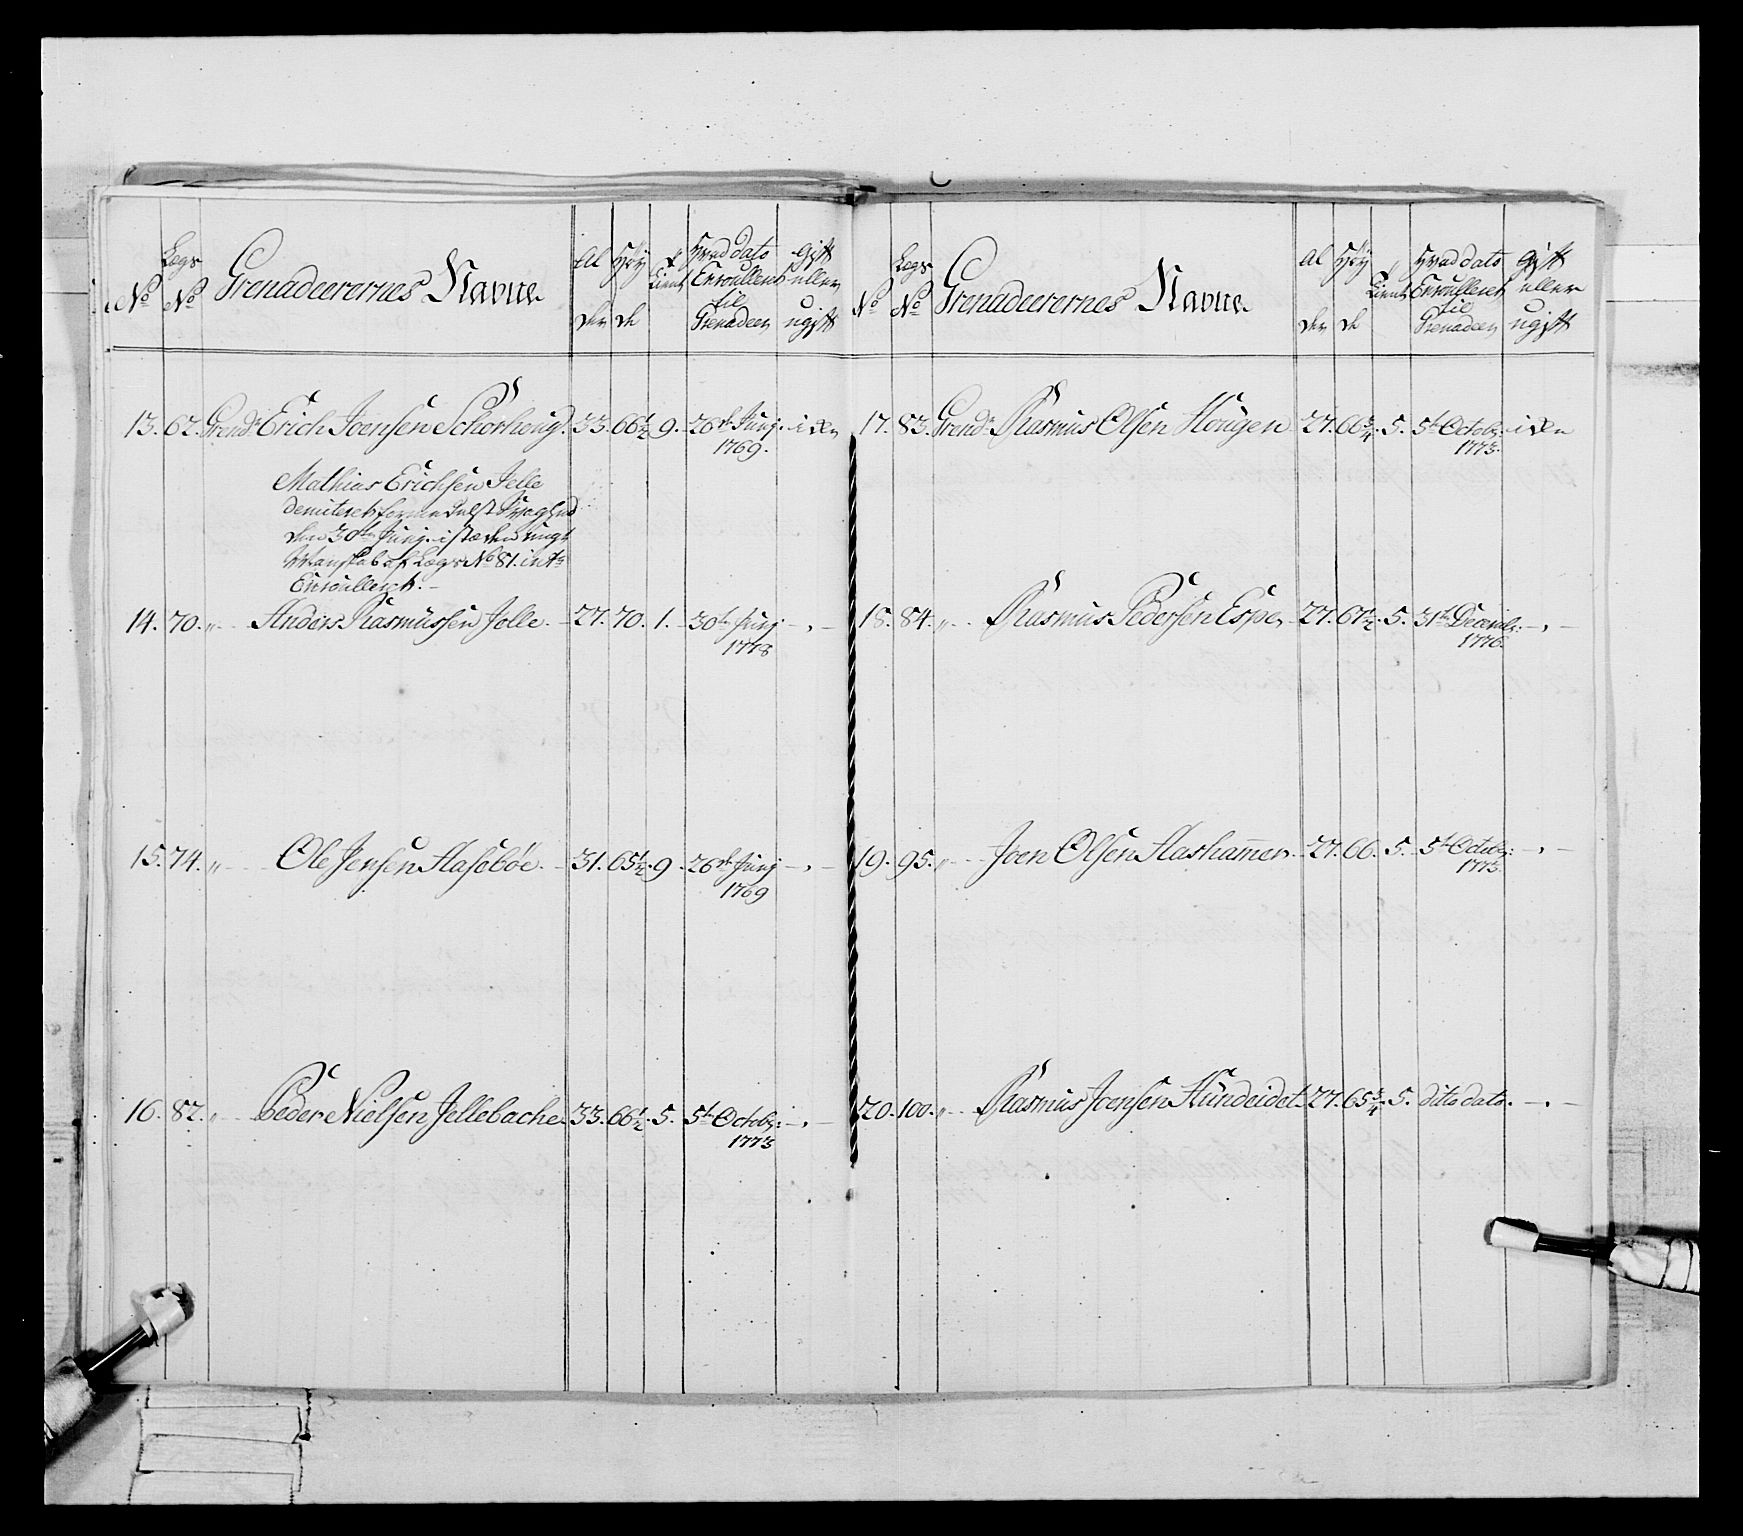 No Legs No Grenadeerernes Navne Alder Høyde tient Hvad dato Enroulleret til Grenadeer gift eller ugift
13. 62. Grend. Erich Joensen Schorheug. 33. 66½ 9. 26de Junj. 1769.
Mathias Erichsen Jelle
demiteret formedelst Svaghed
den 30te Junj. i stæden unge
Mandskab af Legs No 81. indt
Enroulleret.
14. 70. „ Anders Rasmussen Jolle. 27. 70. 1. 30te Junj 1778
15. 74. „ Ole Jensen Aasebøe. 31. 65½. 9. 26de Junj 1769
16. 82. „ Peder Nielsen Jellebache. 33. 66½. 5. 5te Octobr: 1773
No Legs No Grenadeerernes Navne Alder Høyde tient Hvad dato Enroulleret til Grenadeer gift eller ugift
17. 83. Grend. Rasmus Olsen Hougen 27. 66¾. 5. 5te Octobr: 1773.
18. 84. „ Rasmus Pedersen Espe. 27. 67½. 5. 31te Decembr: 1776.
19. 95. „ Joen Olsen Aashammer. 27. 66. 5. 5te Octobr: 1773.
20. 100. „ Rasmus Joensen Hundeidet. 27. 65¾. 5. dito dato.